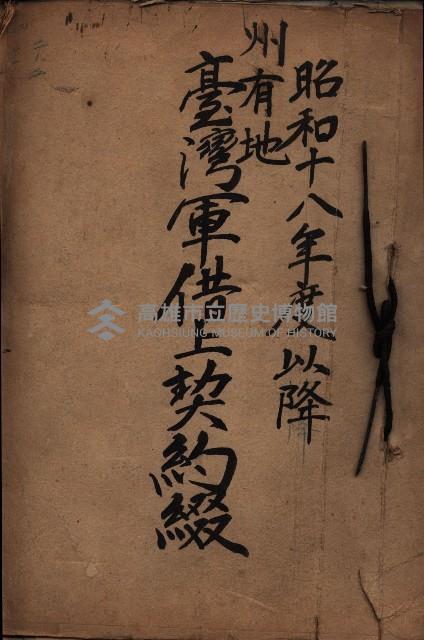 昭和十八年度以降
州有地
臺灣軍借上契約綴
高雄市立歷史博物館
KAOHSIUNG MUSEUM OF HISTORY